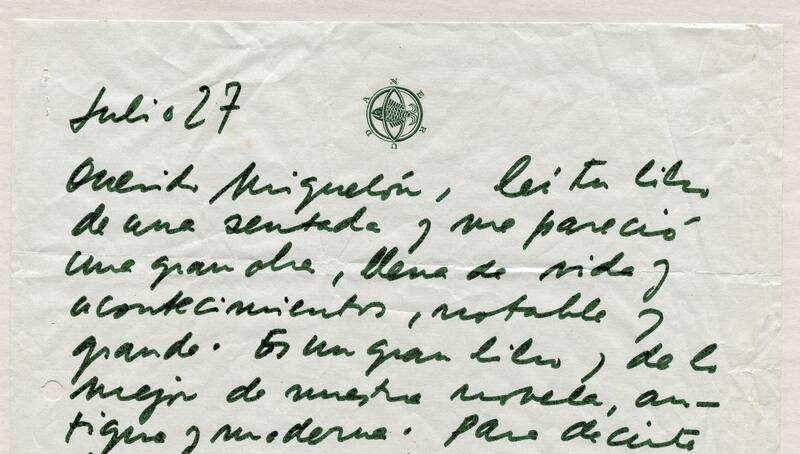 Julio 27
NERUDA
Querido Miguelón, leí tu libro
de una sentada y me pareció
una gran obra, llena de vida y
acontecimientos, notable y
grande. Es un gran libro, y de lo
mejor de nuestra novela, an-
tigua y moderna. Para decirte